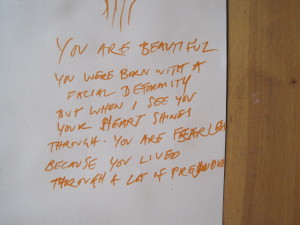 YOU ARE BEAUTIFUL
YOU WERE BORN WITH A
FACIAL DEFORMITY
BUT WHEN I SEE YOU
YOUR HEART SHINES
THROUGH. YOU ARE FEARLESS
BECAUSE YOU LIVED
THROUGH A LOT OF PREJUDICE